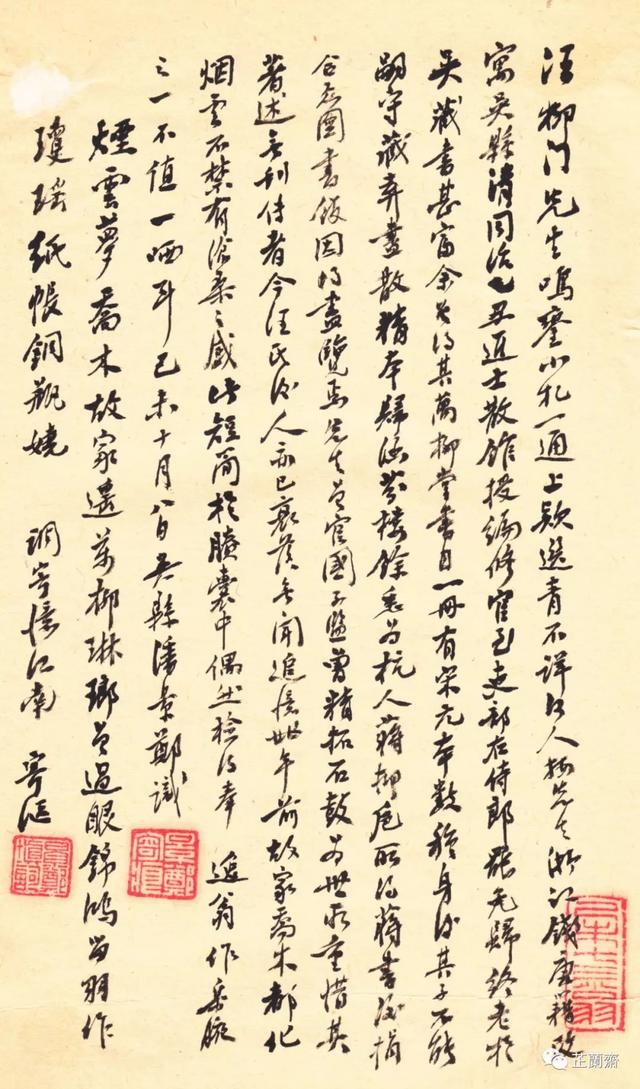 汪柳门先生鳴鑾小札一通上款選青不詳何人按先生浙江錢唐籍改
寓吳縣清同治乙丑進士散館授編修官至吏部左侍郎罷免歸終老於
吳藏書甚富余曾得其萬柳堂書目一冊有宋元本數種身後其子不能
嗣守藏弆盡散精本歸涵芬樓餘悉為杭人蔣抑卮所得蔣書後捐
合眾圖書館因得盡覽焉先生曾官國子監曾精拓石鼓為世所重惜其
著述無刊傳者今汪氏後人亦已衰落無聞追憶卅年前故家喬木都化
烟雲不禁有滄桑之感此短簡於賸囊中偶然檢得奉 追翁作集腋
之一不值一哂耳己未十月八日吳縣潘景鄭識
煙雲夢喬木故家遙萬柳琳瑯曾過眼錦鴻留羽作
瓊瑤紙帳銅瓶嬈 調寄憶江南 寄漚
芷蘭齋